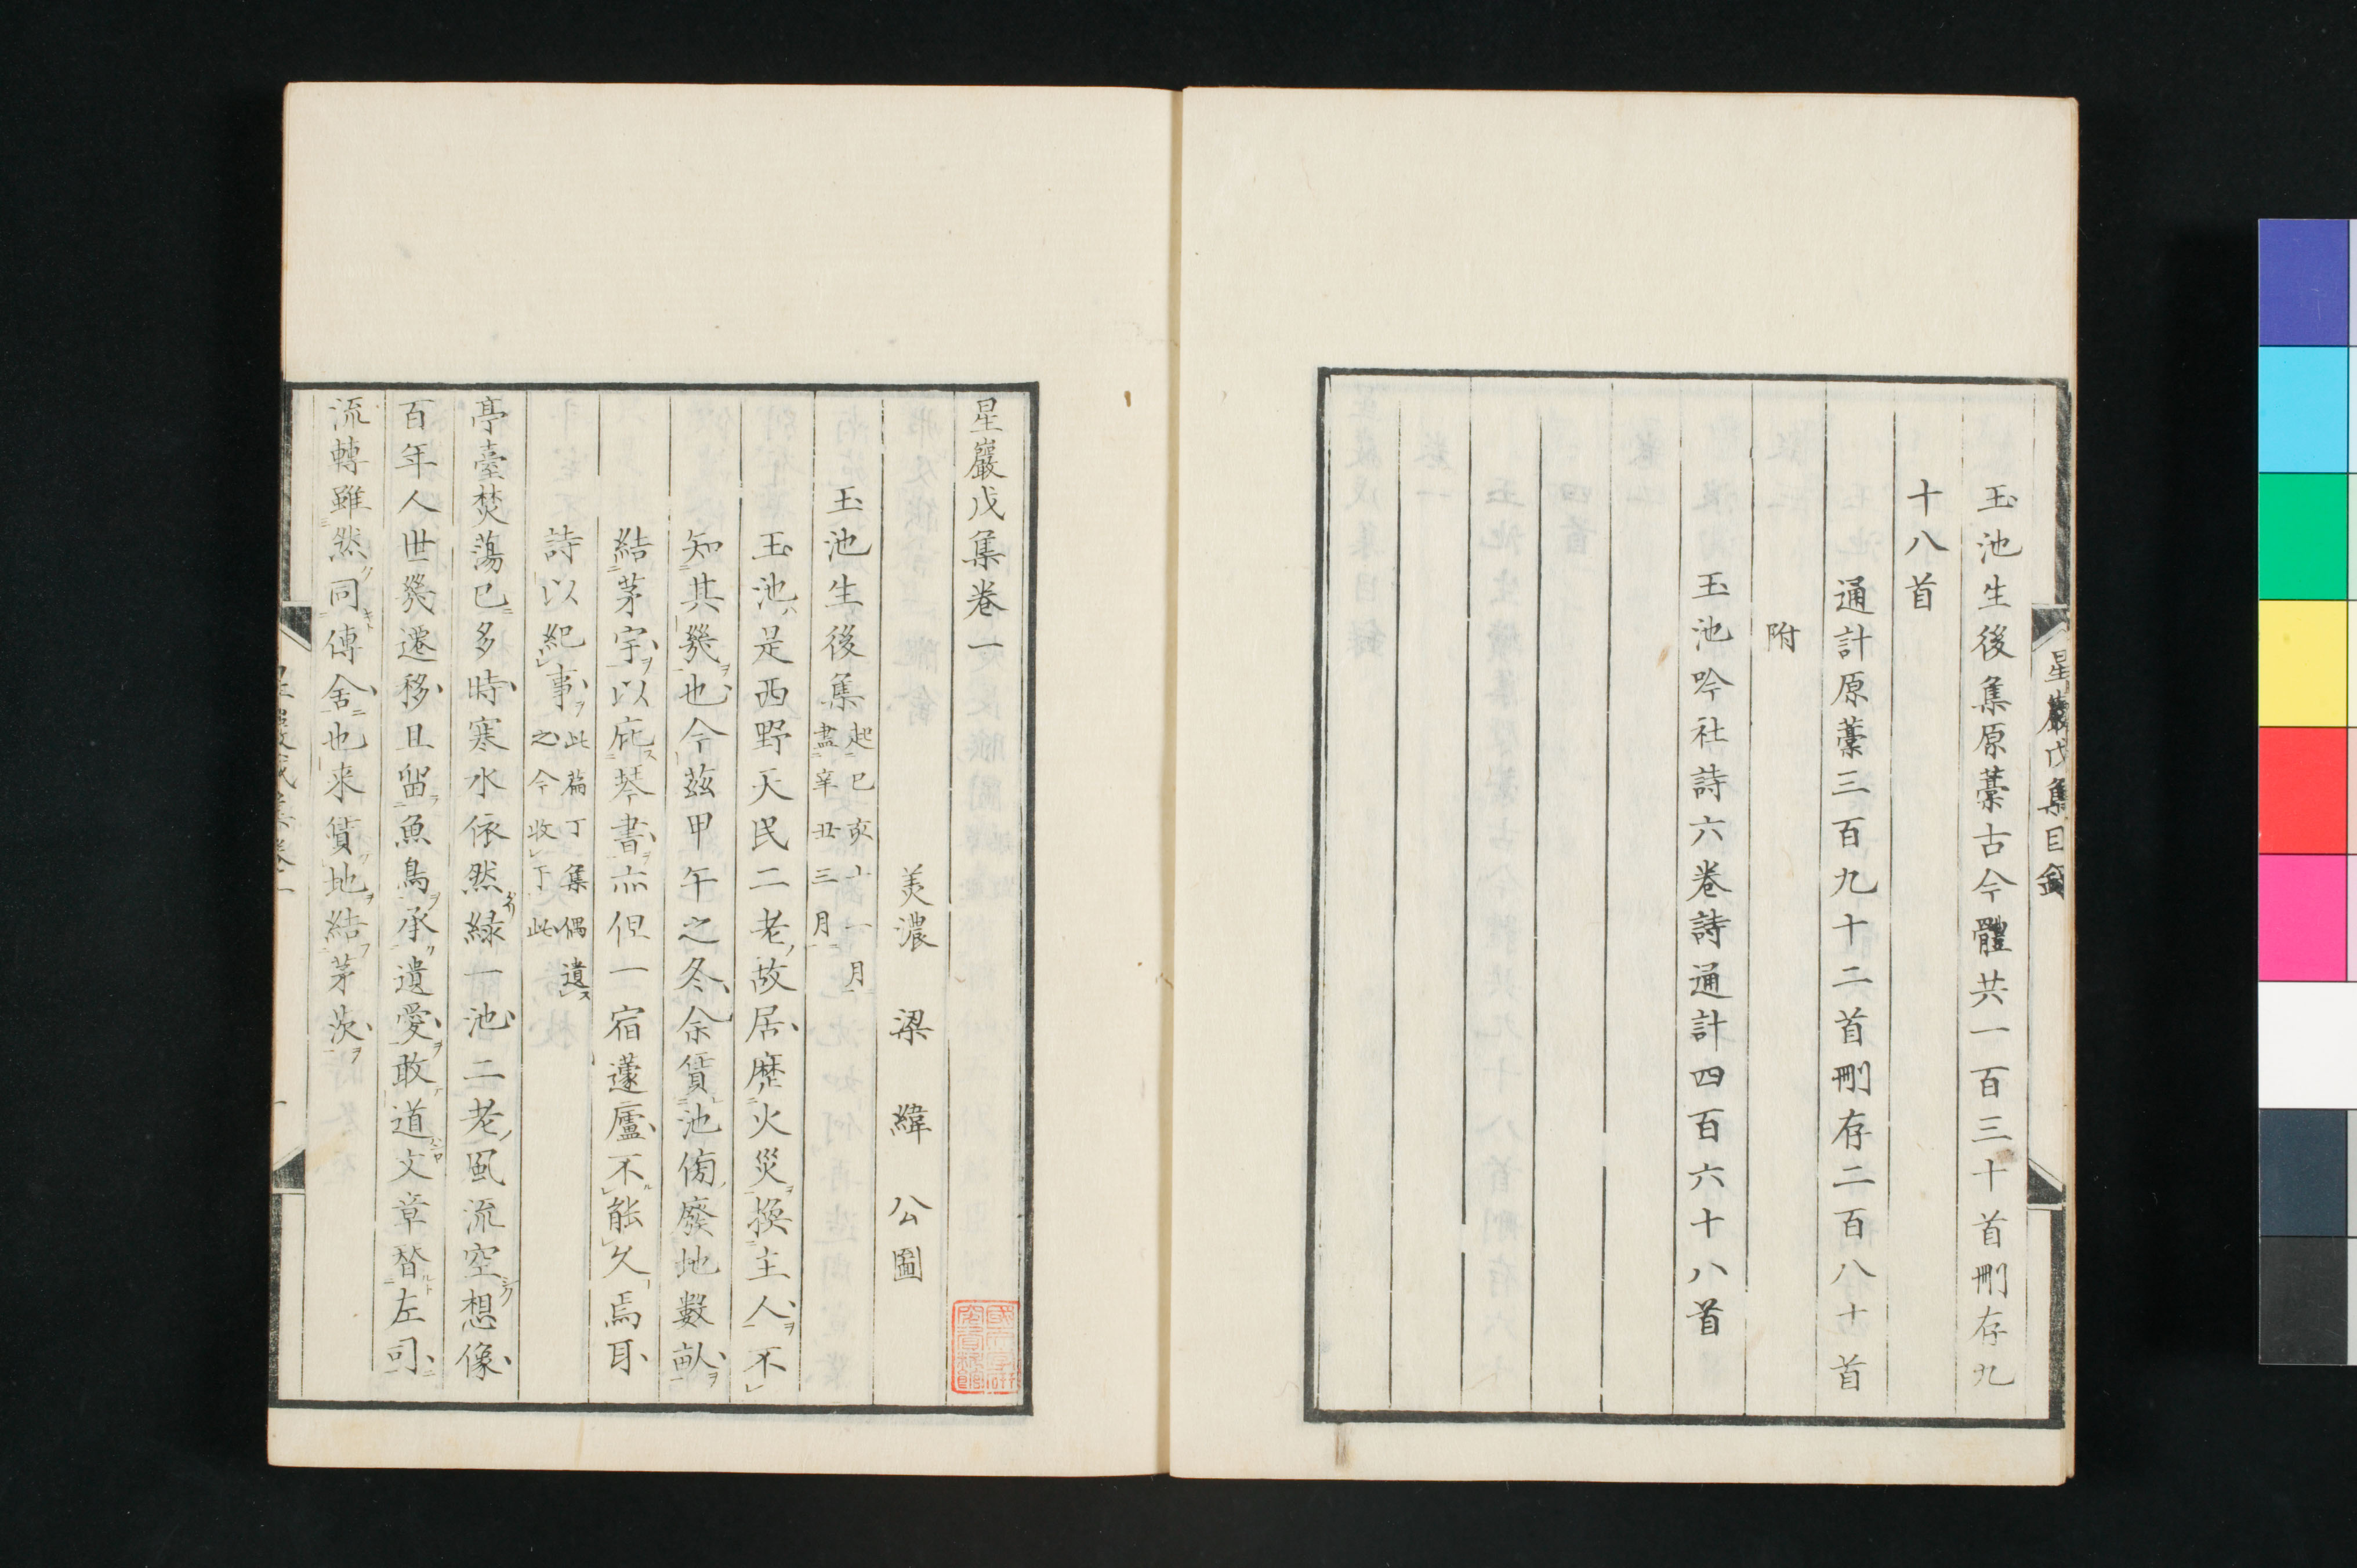 玉池生後集原藁古今體共一百三十首刪存九
十八首
通計原藁三百九十二首刪存二百八十首
附
玉池吟社詩六卷詩通計四百六十八首
星巖戊集目錄
星巖戊集卷一
美濃 梁 緯 公圖
玉池生後集 起己亥十一月 盡辛丑三月
玉池ハ是西野天民二老ノ故居歷火災ヲ換主人ヲ不
知其幾ヲ也今茲甲午之冬余賃池傍ノ廢地數畝ヲ
結茅宇ヲ以庇ス琴書ヲ亦但一宿蘧廬不ル能久焉耳
詩以紀事ヲ 此篇丁集偶遺ス 之今收丁此
亭臺焚蕩已多時寒水依然緑一池二老ノ風流空想像
百年人世幾遷移且留魚鳥ヲ承遺愛ヲ敢道文章替左司ニ
流轉雖然同傳舍ニ也来賃地ヲ結茅茨ヲ
星巖戊集卷一
一